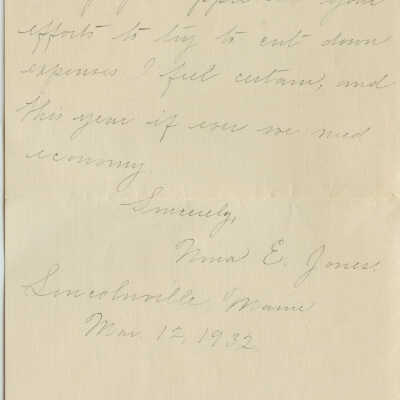 your
efforts to try to cut down
expenses I feel certain, and
this year if ever we need
economy.
Sincerely,
Nina E. Jones.
Lincolnville, Maine
Mar. 12, 1932